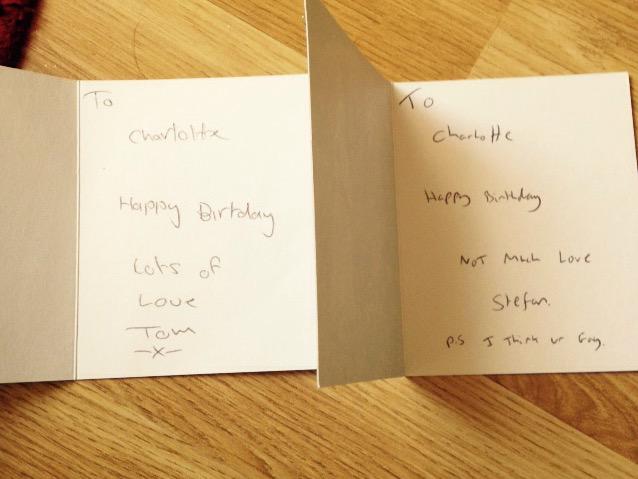 To
Charlotte
Happy Birtday
Lots of
Love
Tom
-x-
To
Charlotte
Happy Birthday
NOT Much Love
Stefan.
P.S I Think ur Gay.